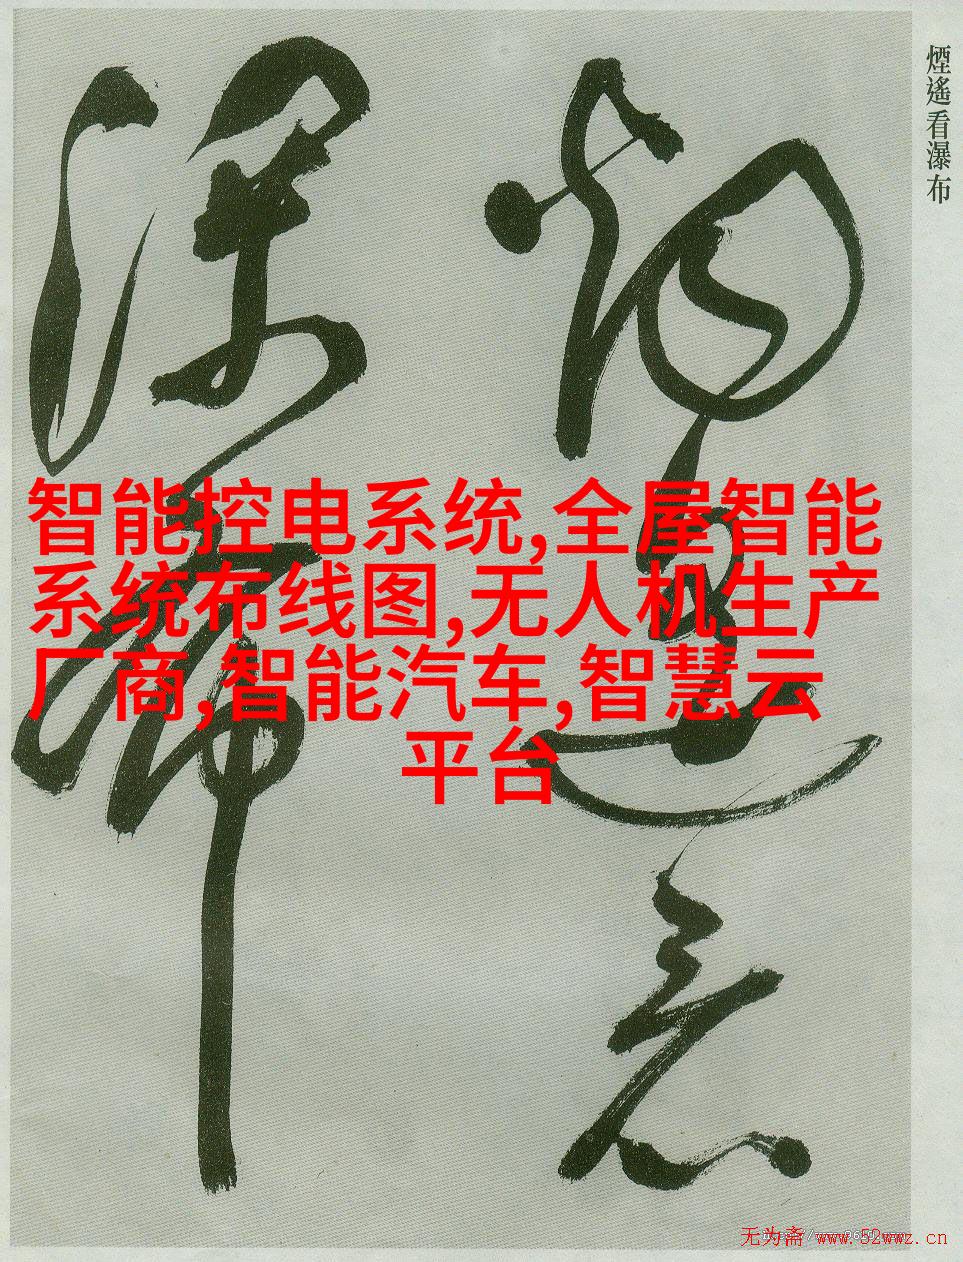 煙遙看瀑布
煙遙看
瀑布
智能控电系统,全屋智能
系统布线图,无人机生产
厂商,智能汽车,智慧云
平台
无为斋 www.52wwz.cn